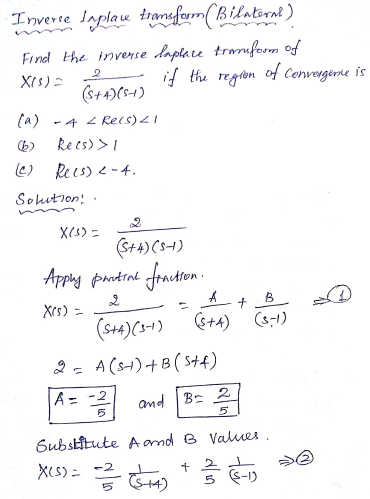 Inverse Laplace transform (Bilateral)
Find the inverse Laplace transform of
X(s) = 2/((s+4)(s-1)) if the region of convergence is
(a) -4 < Re(s) < 1
(b) Re(s) > 1
(c) Re(s) < -4.
Solution:
X(s) = 2/((s+4)(s-1))
Apply partial fraction.
X(s) = 2/((s+4)(s-1)) = A/(s+4) + B/(s-1) ⇒ ①
2 = A(s-1) + B(s+4)
A = -2/5 and B = 2/5
Substitute A and B values.
X(s) = -2/5 1/(s+4) + 2/5 1/(s-1) ⇒ ②